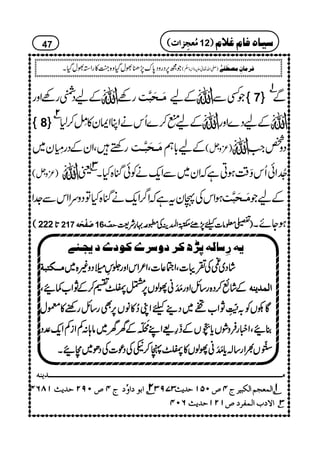 سیاہ فام غلام (12 مُعجزات) 47
فرمانِ مصطفٰے (صلی اللہ تعالیٰ علیہ واٰلہ وسلم) جو مجھ پر درودِ پاک پڑھنا بھول گیا وہ جنت کا راستہ بھول گیا۔
گے {7} جو کسی سے اللہ کے لیے مَحَبَّت رکھے، اللہ کے لیے دشمنی رکھے اور
اللہ کے لیے دے اور اللہ کے لیے منع کرے اُس نے اپنا ایمان کامل کر لیا {8}
دو شخص جب اللہ (عزوجل) کے لیے باہم مَحَبَّت رکھتے ہیں، ان کے درمیان میں
جدائی اُس وقت ہوتی ہے کہ ان میں سے ایک نے کوئی گناہ کیا۔ یعنی اللہ (عزوجل)
کے لیے جو مَحَبَّت ہو اس کی پہچان یہ ہے کہ اگر ایک نے گناہ کیا تو دوسرا اس سے جدا
ہو جائے۔ (تفصیلی معلومات کیلئے پڑھئے مکتبۃ المدینہ کی مطبوعہ بہارِ شریعت حصّہ 16 صَفْحَہ 217 تا 222)
یہ رسالہ پڑھ کر دوسرے کو دے دیجئے
شادی غمی کی تقریبات، اجتماعات، اعراس اور جلوسِ میلاد وغیرہ میں مکتبۃ
المدینہ کے شائع کردہ رسائل اور مَدَنی پھولوں پر مشتمل پمفلٹ تقسیم کر کے ثواب کمائیے،
گاہکوں کو بہ نیّتِ ثواب تحفے میں دینے کیلئے اپنی دُکانوں پر بھی رسائل رکھنے کا معمول
بنائیے، اخبار فروشوں یا بچّوں کے ذَرِیعے اپنے مَحَلّے کے گھر گھر میں ماہانہ کم از کم ایک عدد
سنّتوں بھرا رسالہ یا مَدَنی پھولوں کا پمفلٹ پہنچا کر نیکی کی دعوت کی دھومیں مچائیے۔
مدینہ
۱ المعجم الکبیر ج ۴ ص ۱۵۰ حدیث ۳۹۷۳ ۲ ابی داوٗد ج ۴ ص ۲۹۰ حدیث ۴۶۸۱
۳ الادب المفرد ص ۱۲۱ حدیث ۴۰۶